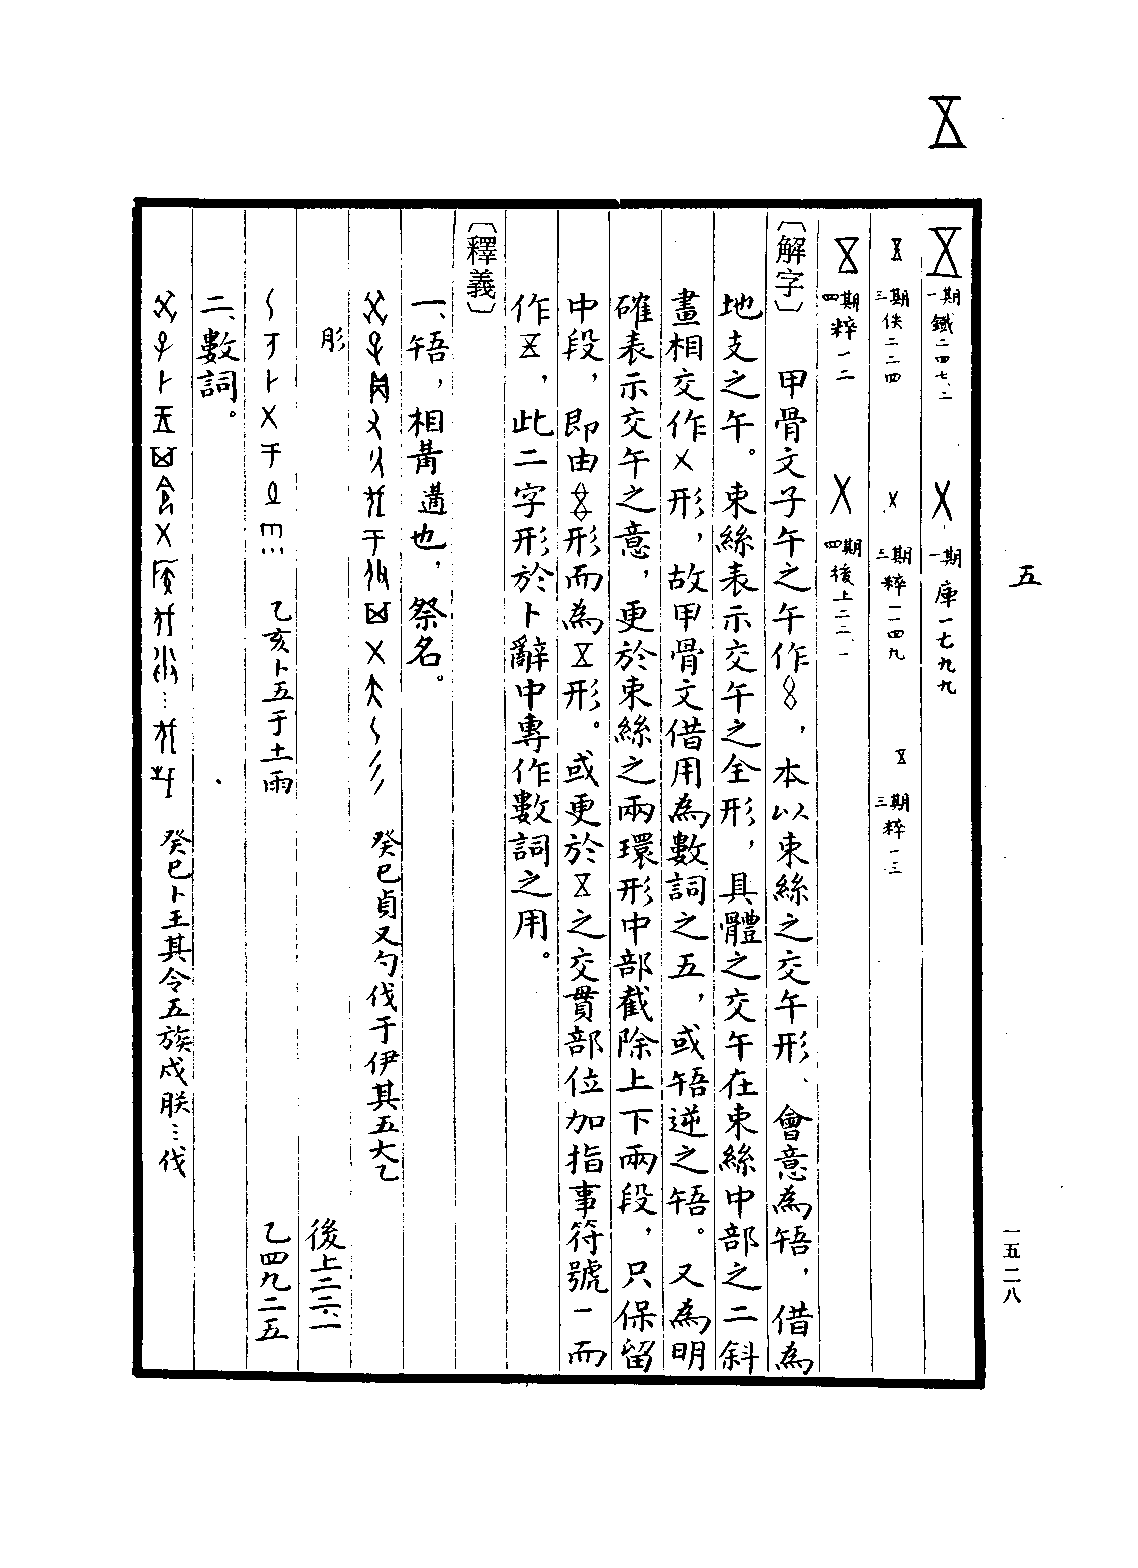 五
一期 鐵二四七.二 一期 庫一七九九
三期 佚二二四 三期 粹一一四九 三期 粹一三
四期 粹一二 四期 後上二二.一
〔解字〕甲骨文子午之午作，本以束絲之交午形、會意為啎，借為
地支之午。束絲表示交午之全形，具體之交午在束絲中部之二斜
畫相交作㐅形，故甲骨文借用為數詞之五，或啎逆之啎。又為明
確表示交午之意，更於束絲之兩環形中部截除上下兩段，只保留
中段，即由形而為形。或更於之交貫部位加指事符號一而
作，此二字形於卜辭中專作數詞之用。
〔釋義〕
一、啎，相冓遘也，祭名。
癸巳貞又勺伐于伊其五大乙
肜 後上二二.一
乙亥卜五于土雨 乙四九二五
二、數詞。
癸巳卜王其令五族戍…伐
一五二八